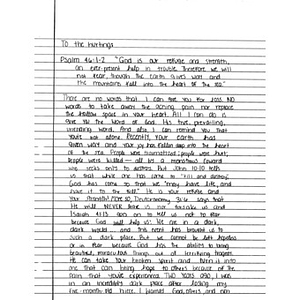 To the hurtings
Psalm 46:1-2 "God is our refuge and strength,
an ever-present help in trouble. Therefore we will
not fear, though the earth gives way and
the mountains fall into the heart of the sea."
There are no words that I can give you for loss. NO
words to take away the aching pain nor replace
the hollow space in your heart. All I can do is
give you the word of God. His true, prevailing,
unending word. And also I can remind you that
you're not alone. Recently, your earth has
given way and your joy has fallen into the heart
of the sea. People were traumatized; people were hurt;
people were killed — all by a monstrous
who seeks only to destroy. But John 10:10 tells
us that while one has come to "kill and destroy"
God has come so that we "may have life, and
have it to the full". He is your refuge and
your strength. Deuteronomy 31:6 says that
He will NEVER leave us nor forsake us and
Isaiah 41:13 goes on to tell us not to fear
because God will help us. We are in a dark,
dark world — and this event has brought us to
such a dark place. But we cannot be left hopeless
or in fear because God has the ability to bring
beautiful, miraculous things out of terrifying tragedy.
He can take your broken spirit and turn it into
one that can bring hope to others because of the
pain that you've experienced. Two years ago, I was
in an incredibly dark place after losing my
five-month old niece. I blamed God, others and